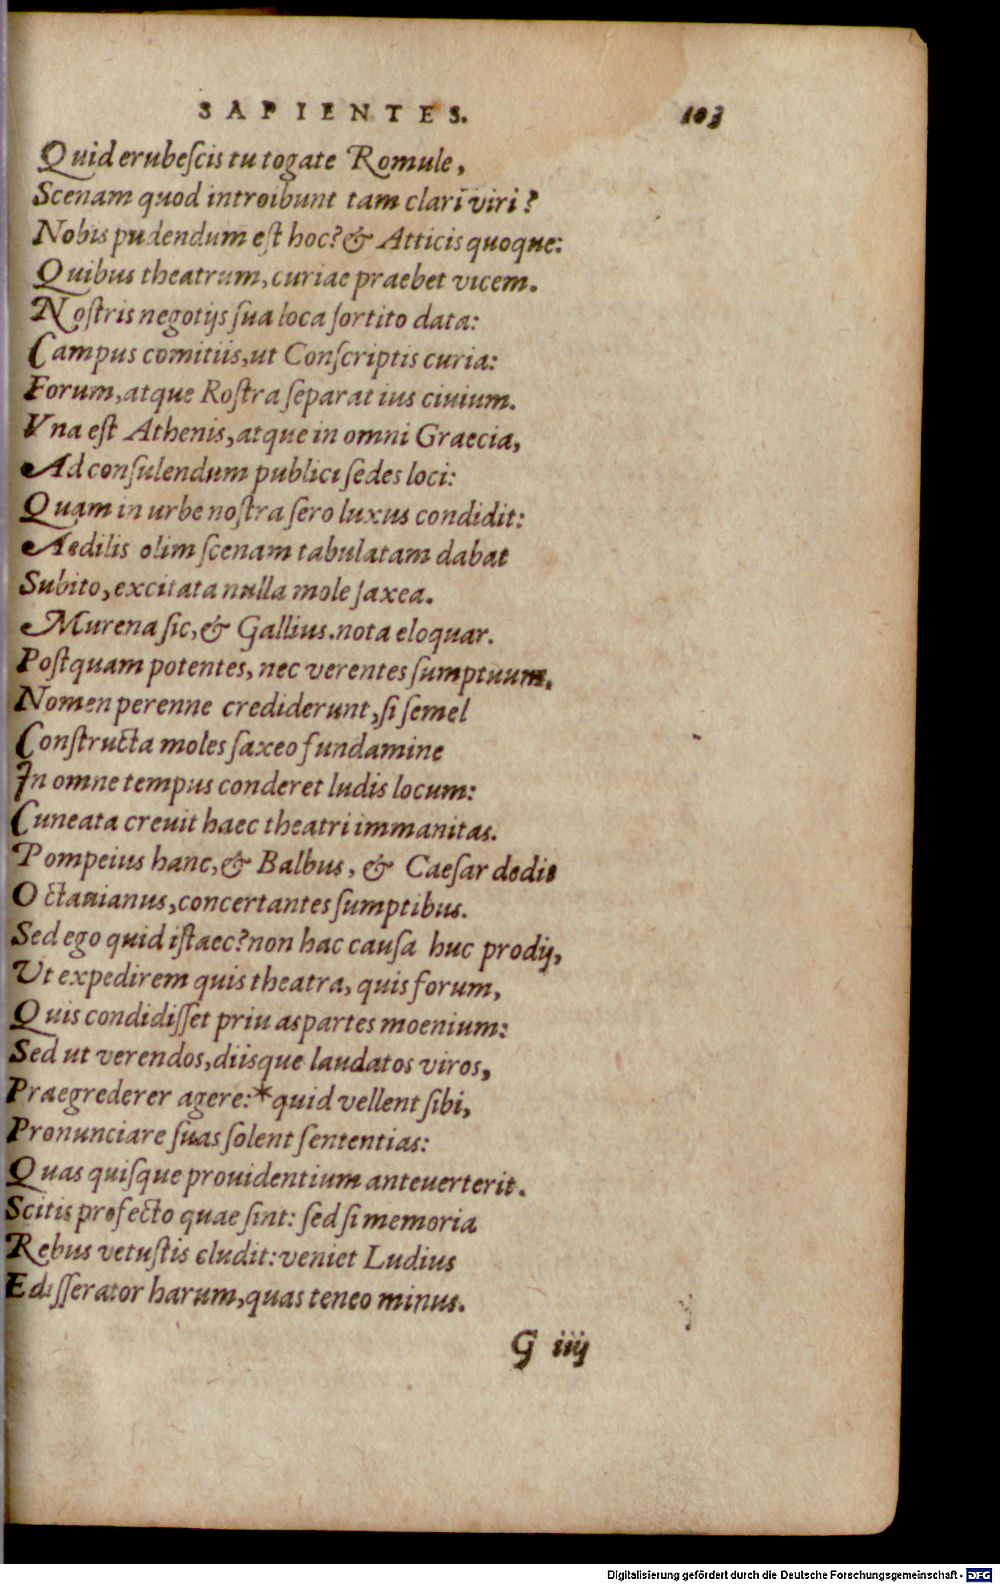 SAPIENTES. 103
Quid erubeſcis tu togate Romule,
Scenam quod introibunt tam clari viri?
Nobis pudendum eſt hoc? & Atticis quoque:
Quibus theatrum, curiae praebet vicem.
Noſtris negotijs ſua loca ſortito data:
Campus comitiis, ut Conſcriptis curia:
Forum, atque Roſtra ſeparat ius ciuium.
Vna eſt Athenis, atque in omni Graecia,
Ad conſulendum publici ſedes loci:
Quam in urbe noſtra ſero luxus condidit:
Aedilis olim ſcenam tabulatam dabat
Subito, excitata nulla mole ſaxea.
Murena ſic, & Gallius. nota eloquar.
Poſtquam potentes, nec verentes ſumptuum,
Nomen perenne crediderunt, ſi ſemel
Conſtructa moles ſaxeo fundamine
In omne tempus conderet ludis locum:
Cuneata creuit haec theatri immanitas.
Pompeius hanc, & Balbus, & Caeſar dedit
Octauianus, concertantes ſumptibus.
Sed ego quid iſtaec? non hac cauſa huc prodij,
Ut expedirem quis theatra, quis forum,
Quis condidiſſet priu as partes moenium:
Sed ut verendos, diisque laudatos viros,
Praegrederer agere: * quid vellent ſibi,
Pronunciare ſuas ſolent ſententias:
Quas quiſque prouidentium anteuerterit.
Scitis profecto quae ſint: ſed ſi memoria
Rebus vetuſtis cludit: veniet Ludius
Ediſſerator harum, quas teneo minus.
G iiij
Digitalisierung gefördert durch die Deutsche Forschungsgemeinschaft - DFG